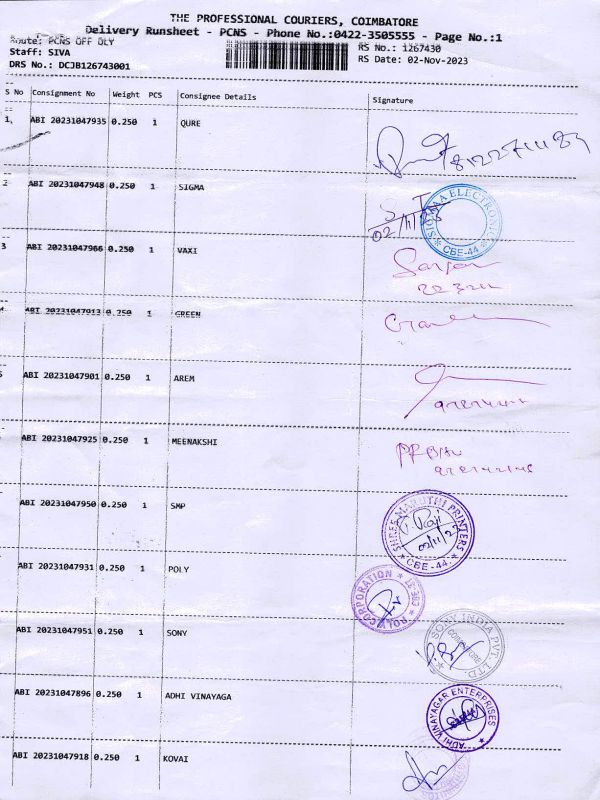 THE PROFESSIONAL COURIERS, COIMBATORE
Delivery Runsheet - PCNS - Phone No.:0422-3505555 - Page No.:1
Route: PCNS OFF DLY
Staff: SIVA
DRS No.: DCJB126743001
RS No.: 1267430
RS Date: 02-Nov-2023
S No Consignment No Weight PCS Consignee Details Signature
1, ABI 20231047935 0.250 1 QURE
2 ABI 20231047948 0.250 1 SIGMA
02/11/23
ELECTRONICS
CBE-44
3 ABI 20231047966 0.250 1 VAXI
ABI 20231047913 0.250 1 GREEN
ABI 20231047901 0.250 1 AREM
ABI 20231047925 0.250 1 MEENAKSHI
ABI 20231047950 0.250 1 SMP
SHREE MARUTHI PRINTERS
02/11/23
CBE-44.
ABI 20231047931 0.250 1 POLY
POLY CORPORATION
ABI 20231047951 0.250 1 SONY
SONY INDIA PVT. LTD.
ABI 20231047896 0.250 1 ADHI VINAYAGA
ADHI VINAYAGAR ENTERPRISES
ABI 20231047918 0.250 1 KOVAI